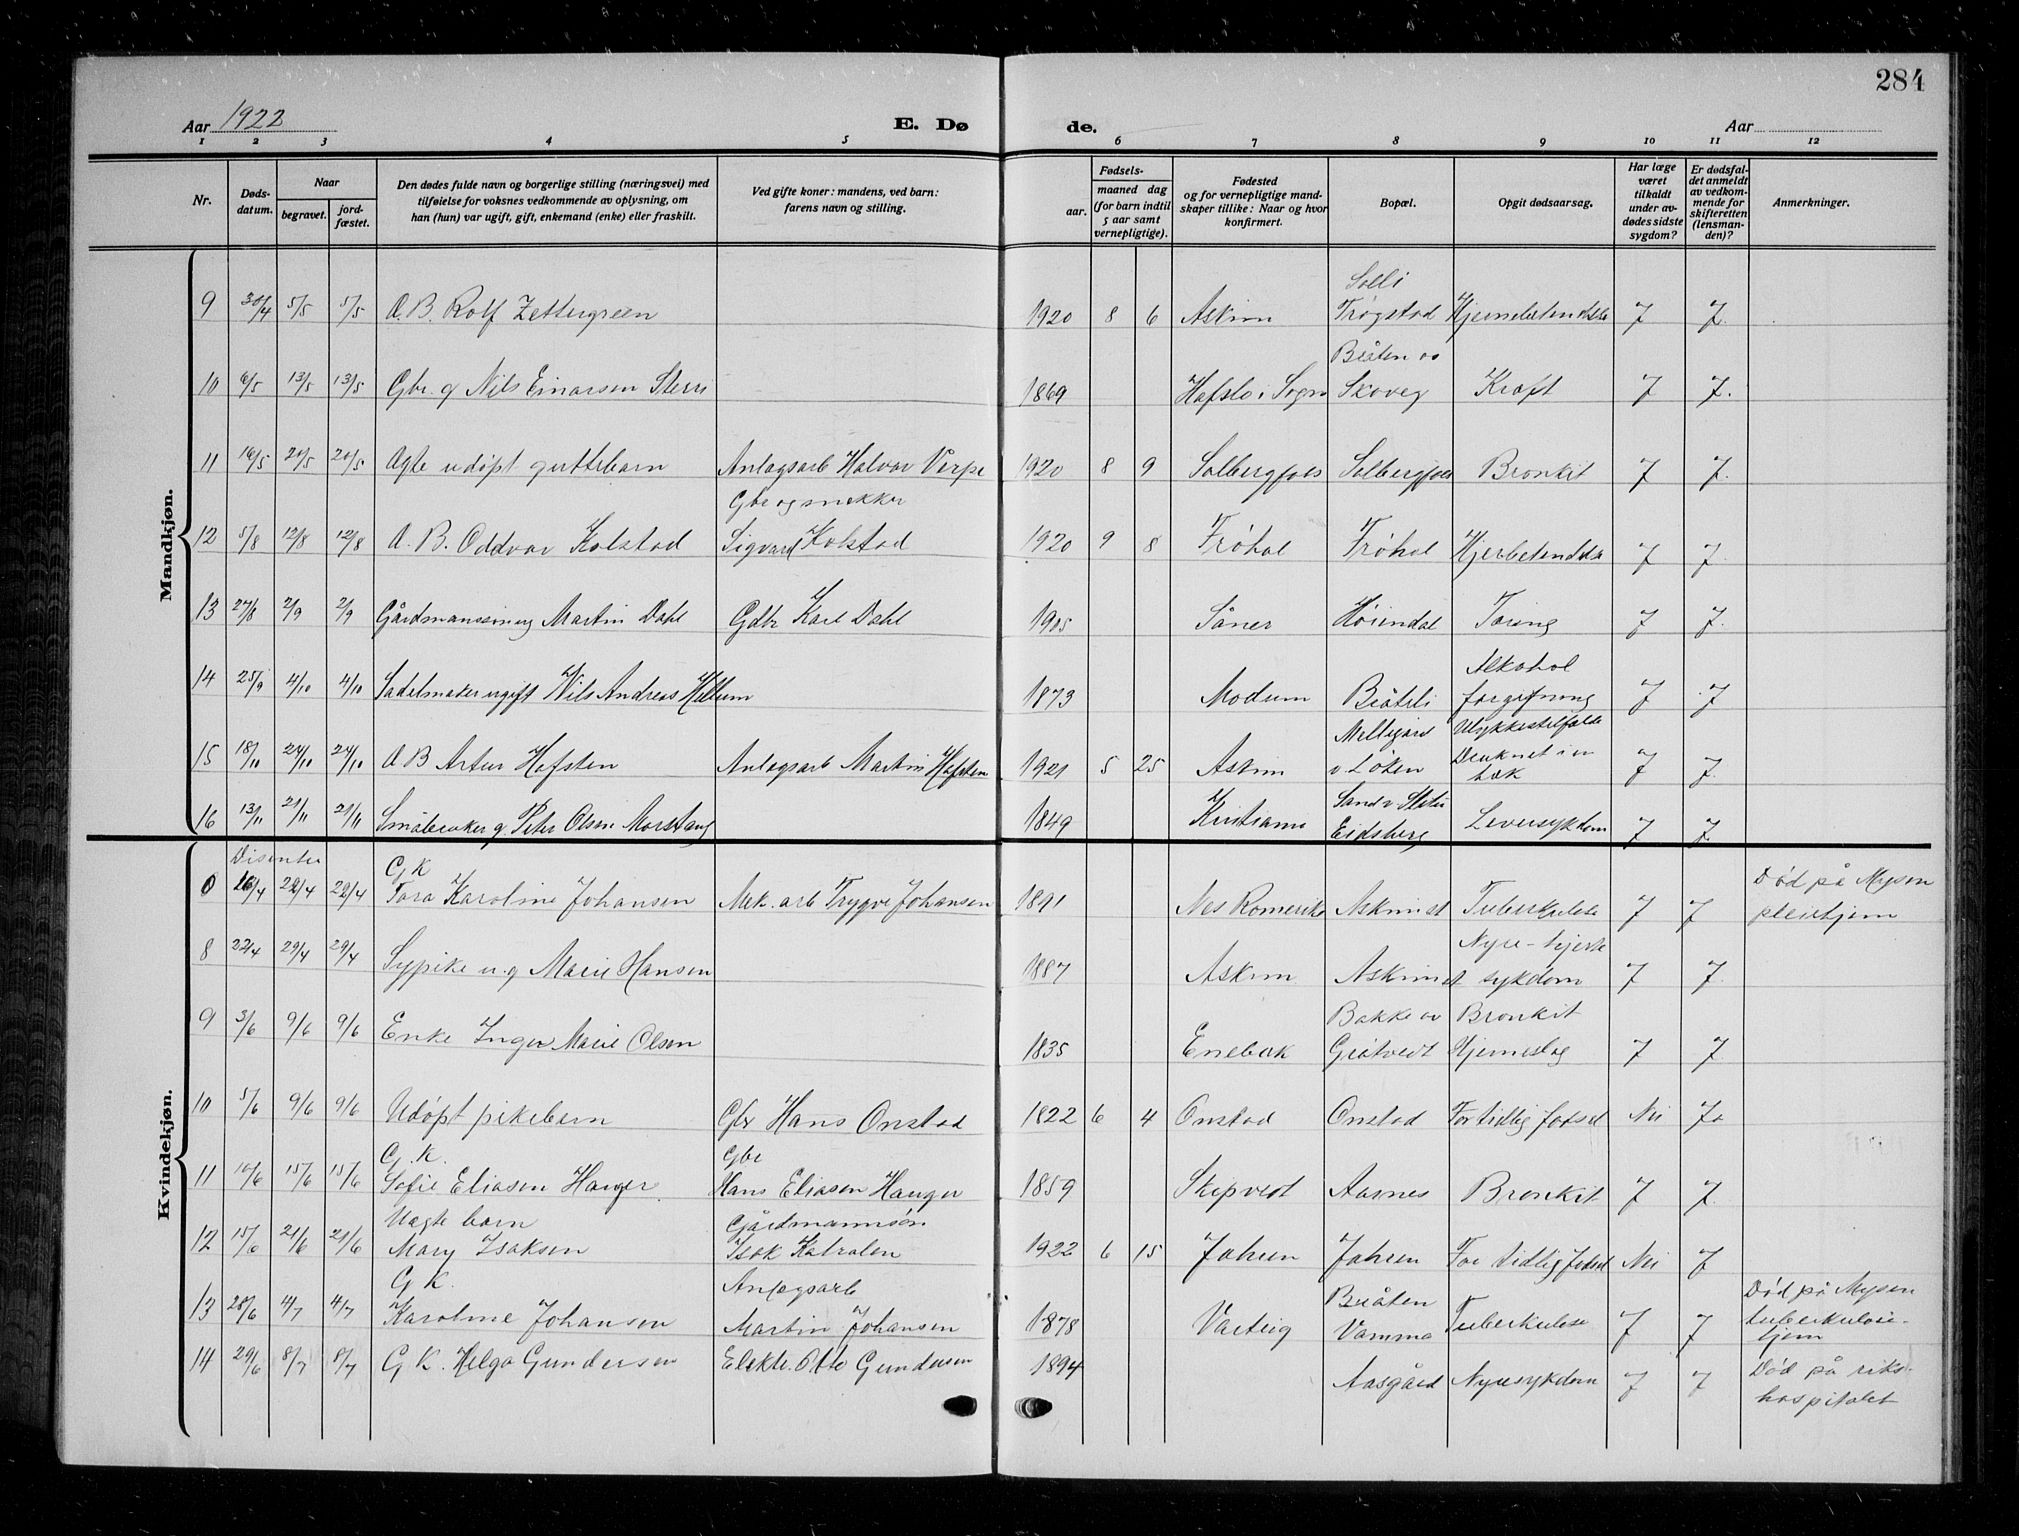 284
Aar 1922
E. Dø
de.
Aar
1 2 3 4 5 6 7 8 9 10 11 12
Nr.
Døds-
datum.
Naar
begravet.
jord-
fæstet.
Den dødes fulde navn og borgerlige stilling (næringsvei) med
tilføielse for voksnes vedkommende av oplysning, om
han (hun) var ugift, gift, enkemand (enke) eller fraskilt.
Ved gifte koner: mandens, ved barn:
farens navn og stilling.
Fødsels-
aar.
maaned dag
(for barn indtil
5 aar samt
vernepligtige).
Fødested
og for vernepligtige mand-
skaper tillike: Naar og hvor
konfirmert.
Bopæl.
Opgit dødsaarsag.
Har læge
været
tilkaldt
under av-
dødes sidste
sygdom?
Er dødsfal-
det anmeldt
av vedkom-
mende for
skifteretten
(lensman-
den)?
Anmerkninger.
Mandkjøn.
Solli
9 30/4 5/5 5/5 A.B. Rolf Zettergreen 1920 8 6 Askim Trøgstad Hjernebetendelse J J.
Bråten av
10 6/5 13/5 13/5 Gbr g Nils Einarsen Sterri 1869 Hafslo i Sogn Skoveg Kræft J J.
11 16/5 20/5 20/5 Ægte udøpt guttebarn Anlægsarb Halvor Verpe 1920 8 9 Solbergfoss Solbergfoss Bronkit J J.
Gbr og snekker
12 5/8 12/8 12/8 A.B. Oddvar Kolstad Sigvard Kolstad 1920 9 8 Frøhol Frøhol J J.
13 27/8 2/9 2/9 Gårdmannssøn ug Martin Dahl Gdbr Karl Dahl 1905 Såner Høiendal Tæring J J.
Alkohol
14 25/9 4/10 4/10 Sadelmaker ugift Nils Andreas Hellum 1873 Modum Bråteli forgiftning J J
Melligård Ulykkestilfælde
15 18/10 24/10 24/10 A B Artur Hofsten Anlægsarb Martin Hofsten 1921 5 25 Askim v Løken Druknet i en
bæk J J.
Sand v. Slitu
16 13/11 21/11 21/11 Småbruker g. Peter Olsen Morstang 1849 Kristiania Eidsberg Leversykdom J J.
Kvindekjøn.
Disenter G K Død på Mysen
0 16/4 22/4 22/4 Tora Karoline Johansen Mek. arb Trygve Johansen 1891 Nes Romerike Askim st Tuberkulose J J pleiehjem
Nyre-hjerte
8 22/4 29/4 29/4 Sypike u.g Marie Hansen 1887 Askim Askim st sykdom J J.
Bakke av Bronkit
9 3/6 9/6 9/6 Enke Inger Marie Olsen 1835 Enebak Grøtvedt Hjerneslag J J.
10 5/6 9/6 9/6 Udøpt pikebarn Gbr Hans Onstad 1822 6 4 Onstad Onstad For tidlig fødsel Nei Ja
G. K. Gbr
11 10/6 15/6 15/6 Sofie Eliasen Hanger Hans Eliasen Hanger 1859 Skipvedt Aarnes Bronkit J J.
Uægte barn Gårdmannsøn
12 15/6 21/6 21/6 Mary Isaksen Isak 1922 6 15 Jahren Jahren For tidlig fødsel Nei J
G K. Anlægsarb Bråten Død på Mysen
13 28/6 4/7 4/7 Karoline Johansen Martin Johansen 1878 Varteig Vamma Tuberkulose J J tuberkulose-
hjem
14 29/6 8/7 8/7 G K. Helga Gundersen Elektr. Otto Gundersen 1894 Aasgård Nyresykdom J J Død på riks-
hospitalet